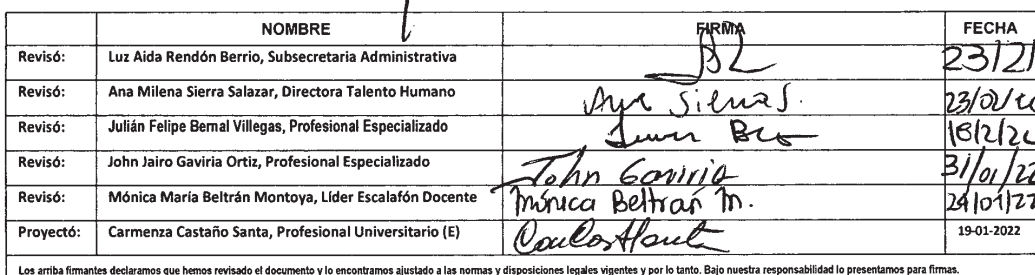 NOMBRE FIRMA FECHA
Revisó: Luz Aida Rendón Berrio, Subsecretaria Administrativa 23/2/
Revisó: Ana Milena Sierra Salazar, Directora Talento Humano Ana Sierra S. 23/02/
Revisó: Julián Felipe Bernal Villegas, Profesional Especializado 18/2/22
Revisó: John Jairo Gaviria Ortiz, Profesional Especializado John Gaviria 31/01/22
Revisó: Mónica María Beltrán Montoya, Líder Escalafón Docente Mónica Beltrán M. 24/01/22
Proyectó: Carmenza Castaño Santa, Profesional Universitario (E) 19-01-2022
Los arriba firmantes declaramos que hemos revisado el documento y lo encontramos ajustado a las normas y disposiciones legales vigentes y por lo tanto. Bajo nuestra responsabilidad lo presentamos para firmas.